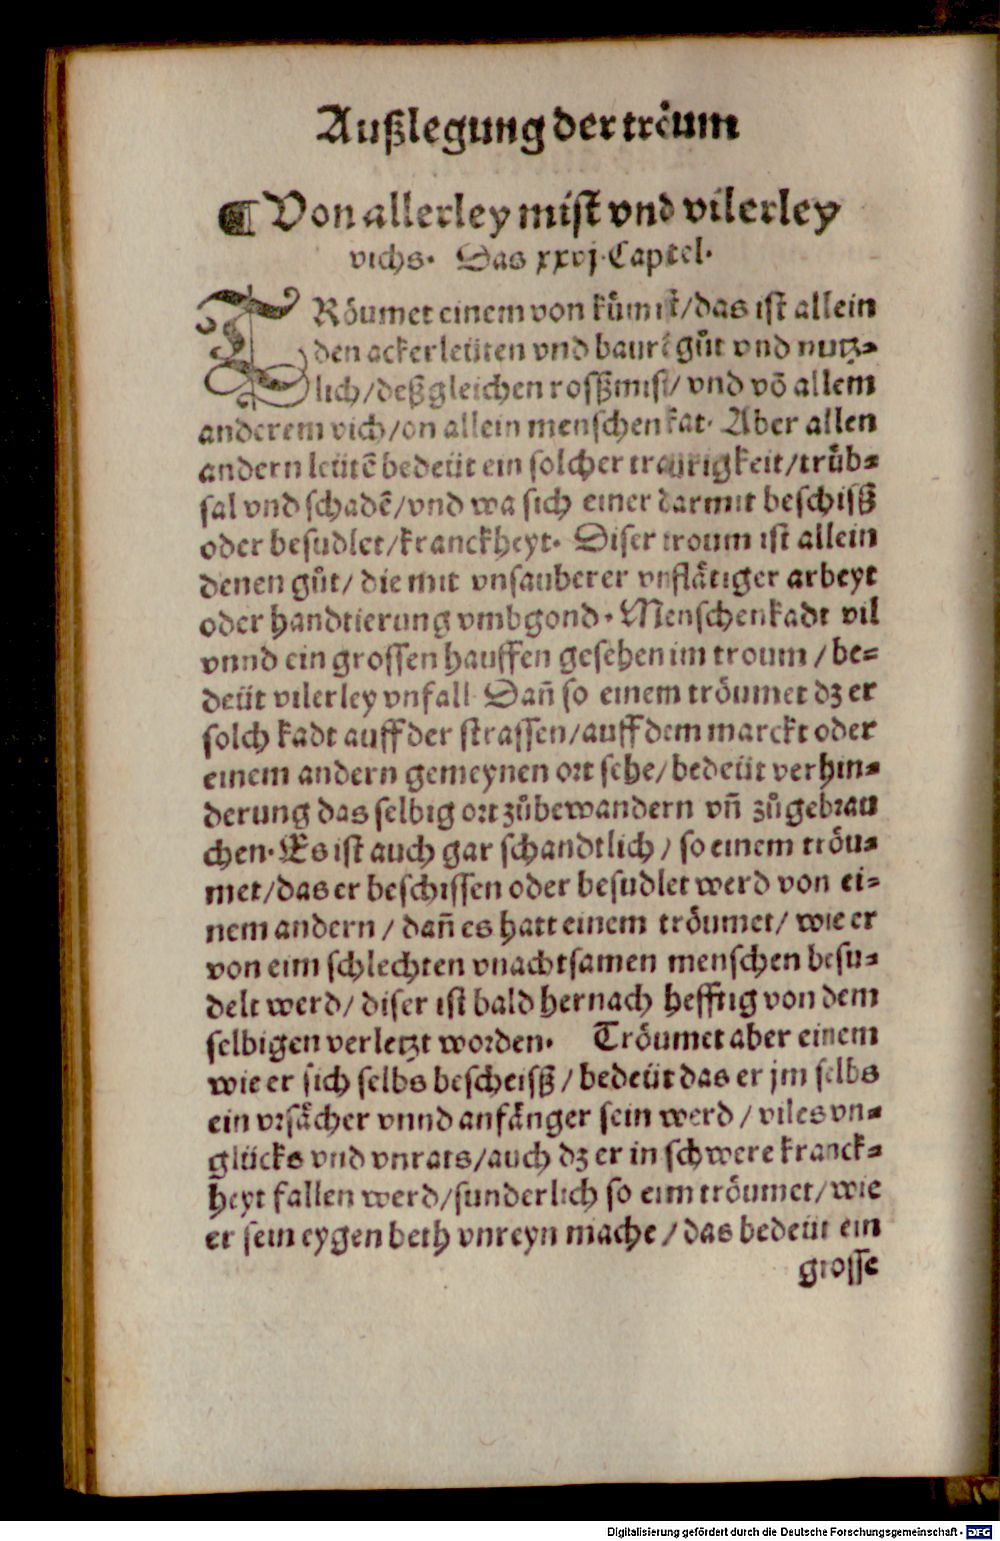 Außlegung der troͤum
¶ Von allerley mist vnd vilerley
vichs. Das xxvj. Capitel.
TRoͤumet einem von kuͤmist/das ist allein
den ackerleüten vnd baurē guͦt vnd nutz-
lich/deßgleichen rosszmist/vnd vō allem
anderem vich/on allein menschenkat. Aber allen
andern leütē bedeüt ein solcher traurigkeit/truͤb-
sal vnd schadē/vnd wa sich einer darmit beschissz
oder besudlet/kranckheyt. Diser troum ist allein
denen guͦt/die mit vnsauberer vnflaͤtiger arbeyt
oder handtierung vmbgond. Menschenkadt vil
vnnd ein grossen hauffen gesehen im troum/be-
deüt vilerley vnfall Dañ so einem troͤumet dz er
solch kadt auff der strassen/auff dem marckt oder
einem andern gemeynen ort sehe/bedeüt verhin-
derung das selbig ort zuͦbewandern vñ zuͦgebrau
chen. Es ist auch gar schandtlich/so einem troͤu-
met/das er beschissen oder besudlet werd von ei-
nem andern/dañ es hatt einem troͤumet/wie er
von eim schlechten vnachtsamen menschen besu-
delt werd/diser ist bald hernach hefftig von dem
selbigen verletzt worden. Troͤumet aber einem
wie er sich selbs bescheissz/bedeüt das er jm selbs
ein vrsaͤcher vnnd anfaͤnger sein werd/viles vn-
glücks vnd vnrats/auch dz er in schwere kranck-
heyt fallen werd/sunderlich so eim troͤumet/wie
er sein eygen beth vnreyn mache/das bedeüt ein
grosse
Digitalisierung gefördert durch die Deutsche Forschungsgemeinschaft - DFG